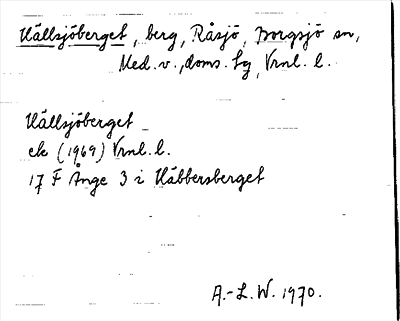 Hällsjöberget, berg, Råsjö, Borgsjö sn,
Med. v., doms. tg, Vrnl. l.
Hällsjöberget
ek (1969) Vrnl. l.
17 F Ånge 3 i Häbbersberget
A.-L. W. 1970.